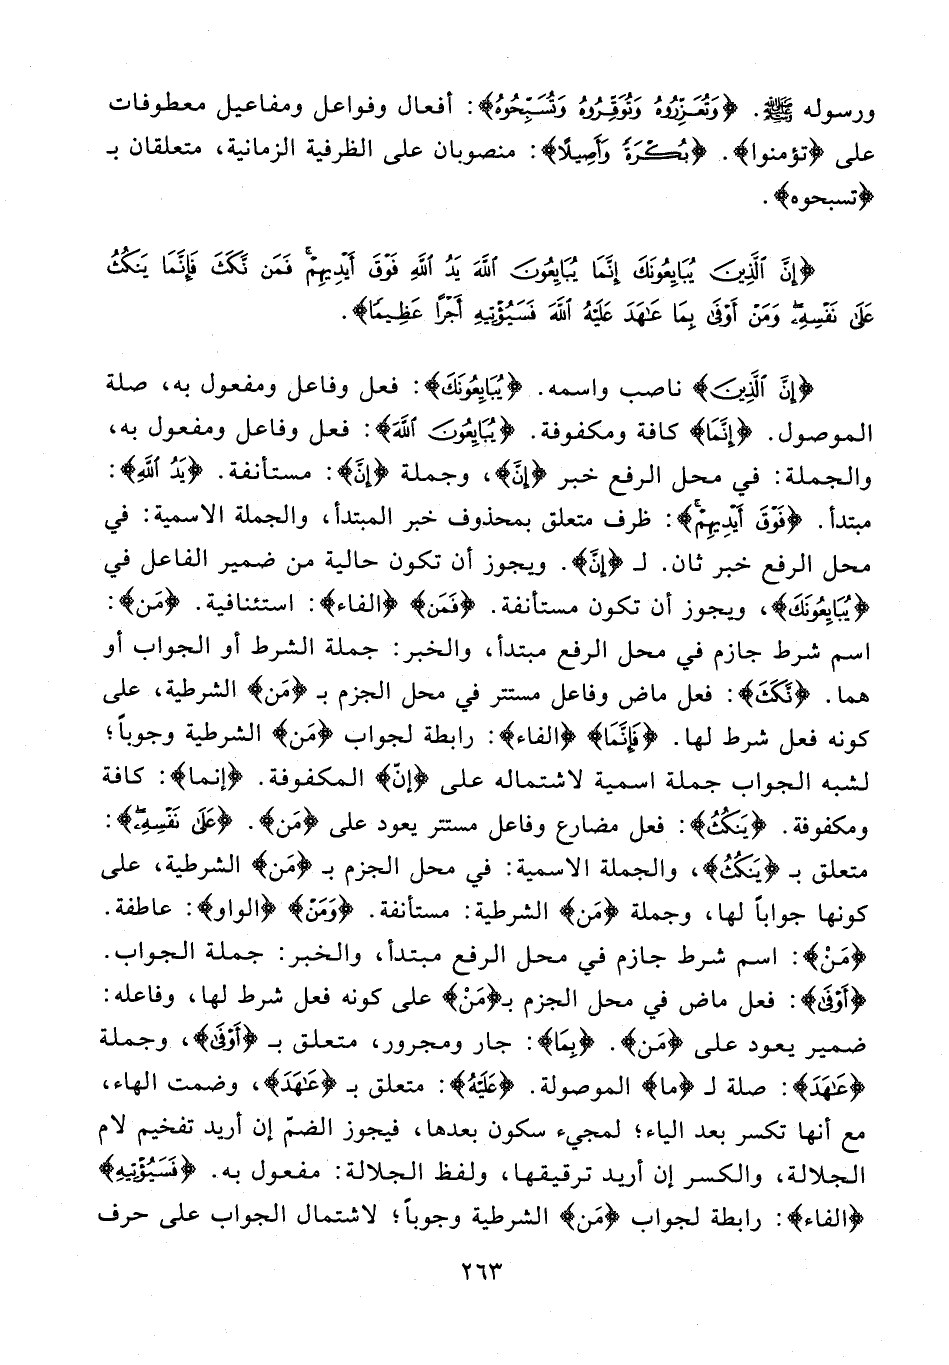 ورسوله ﷺ. ﴿وَتُعَزِّرُوهُ وَتُوَقِّرُوهُ وَتُسَبِّحُوهُ﴾: أفعال وفواعل ومفاعيل معطوفات
على ﴿تؤمنوا﴾. ﴿بُكْرَةً وَأَصِيلًا﴾: منصوبان على الظرفية الزمانية، متعلقان بـ
﴿تسبحوه﴾.
﴿إِنَّ ٱلَّذِينَ يُبَايِعُونَكَ إِنَّمَا يُبَايِعُونَ ٱللَّهَ يَدُ ٱللَّهِ فَوْقَ أَيْدِيهِمْۚ فَمَن نَّكَثَ فَإِنَّمَا يَنكُثُ
عَلَىٰ نَفْسِهِۦۖ وَمَنْ أَوْفَىٰ بِمَا عَٰهَدَ عَلَيْهُ ٱللَّهَ فَسَيُؤْتِيهِ أَجْرًا عَظِيمًا﴾.
﴿إِنَّ ٱلَّذِينَ﴾ ناصب واسمه. ﴿يُبَايِعُونَكَ﴾: فعل وفاعل ومفعول به، صلة
الموصول. ﴿إِنَّمَا﴾ كافة ومكفوفة. ﴿يُبَايِعُونَ ٱللَّهَ﴾: فعل وفاعل ومفعول به،
والجملة: في محل الرفع خبر ﴿إِنَّ﴾، وجملة ﴿إِنَّ﴾: مستأنفة. ﴿يَدُ ٱللَّهِ﴾:
مبتدأ. ﴿فَوْقَ أَيْدِيهِمْۚ﴾: ظرف متعلق بمحذوف خبر المبتدأ، والجملة الاسمية: في
محل الرفع خبر ثان. لـ ﴿إِنَّ﴾. ويجوز أن تكون حالية من ضمير الفاعل في
﴿يُبَايِعُونَكَ﴾، ويجوز أن تكون مستأنفة. ﴿فَمَن﴾ ﴿الفاء﴾: استئنافية. ﴿مَن﴾:
اسم شرط جازم في محل الرفع مبتدأ، والخبر: جملة الشرط أو الجواب أو
هما. ﴿نَّكَثَ﴾: فعل ماض وفاعل مستتر في محل الجزم بـ ﴿مَن﴾ الشرطية، على
كونه فعل شرط لها. ﴿فَإِنَّمَا﴾ ﴿الفاء﴾: رابطة لجواب ﴿مَن﴾ الشرطية وجوباً؛
لشبه الجواب جملة اسمية لاشتماله على ﴿إنّ﴾ المكفوفة. ﴿إنما﴾: كافة
ومكفوفة. ﴿يَنكُثُ﴾: فعل مضارع وفاعل مستتر يعود على ﴿مَن﴾. ﴿عَلَىٰ نَفْسِهِۦۖ﴾:
متعلق بـ ﴿يَنكُثُ﴾، والجملة الاسمية: في محل الجزم بـ ﴿مَن﴾ الشرطية، على
كونها جواباً لها، وجملة ﴿مَن﴾ الشرطية: مستأنفة. ﴿وَمَنْ﴾ ﴿الواو﴾: عاطفة.
﴿مَنْ﴾: اسم شرط جازم في محل الرفع مبتدأ، والخبر: جملة الجواب.
﴿أَوْفَىٰ﴾: فعل ماض في محل الجزم بـ﴿مَنْ﴾ على كونه فعل شرط لها، وفاعله:
ضمير يعود على ﴿مَن﴾. ﴿بِمَا﴾: جار ومجرور، متعلق بـ ﴿أَوْفَىٰ﴾، وجملة
﴿عَٰهَدَ﴾: صلة لـ ﴿ما﴾ الموصولة. ﴿عَلَيْهُ﴾: متعلق بـ ﴿عَٰهَدَ﴾، وضمت الهاء،
مع أنها تكسر بعد الياء؛ لمجيء سكون بعدها، فيجوز الضمّ إن أريد تفخيم لام
الجلالة، والكسر إن أريد ترقيقها، ولفظ الجلالة: مفعول به. ﴿فَسَيُؤْتِيهِ﴾
﴿الفاء﴾: رابطة لجواب ﴿مَن﴾ الشرطية وجوباً؛ لاشتمال الجواب على حرف
٢٦٣